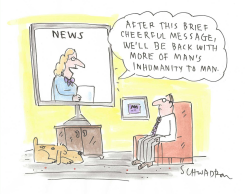 NEWS
AFTER THIS BRIEF
CHEERFUL MESSAGE,
WE'LL BE BACK WITH
MORE OF MAN'S
INHUMANITY TO MAN.
SCHWADRON